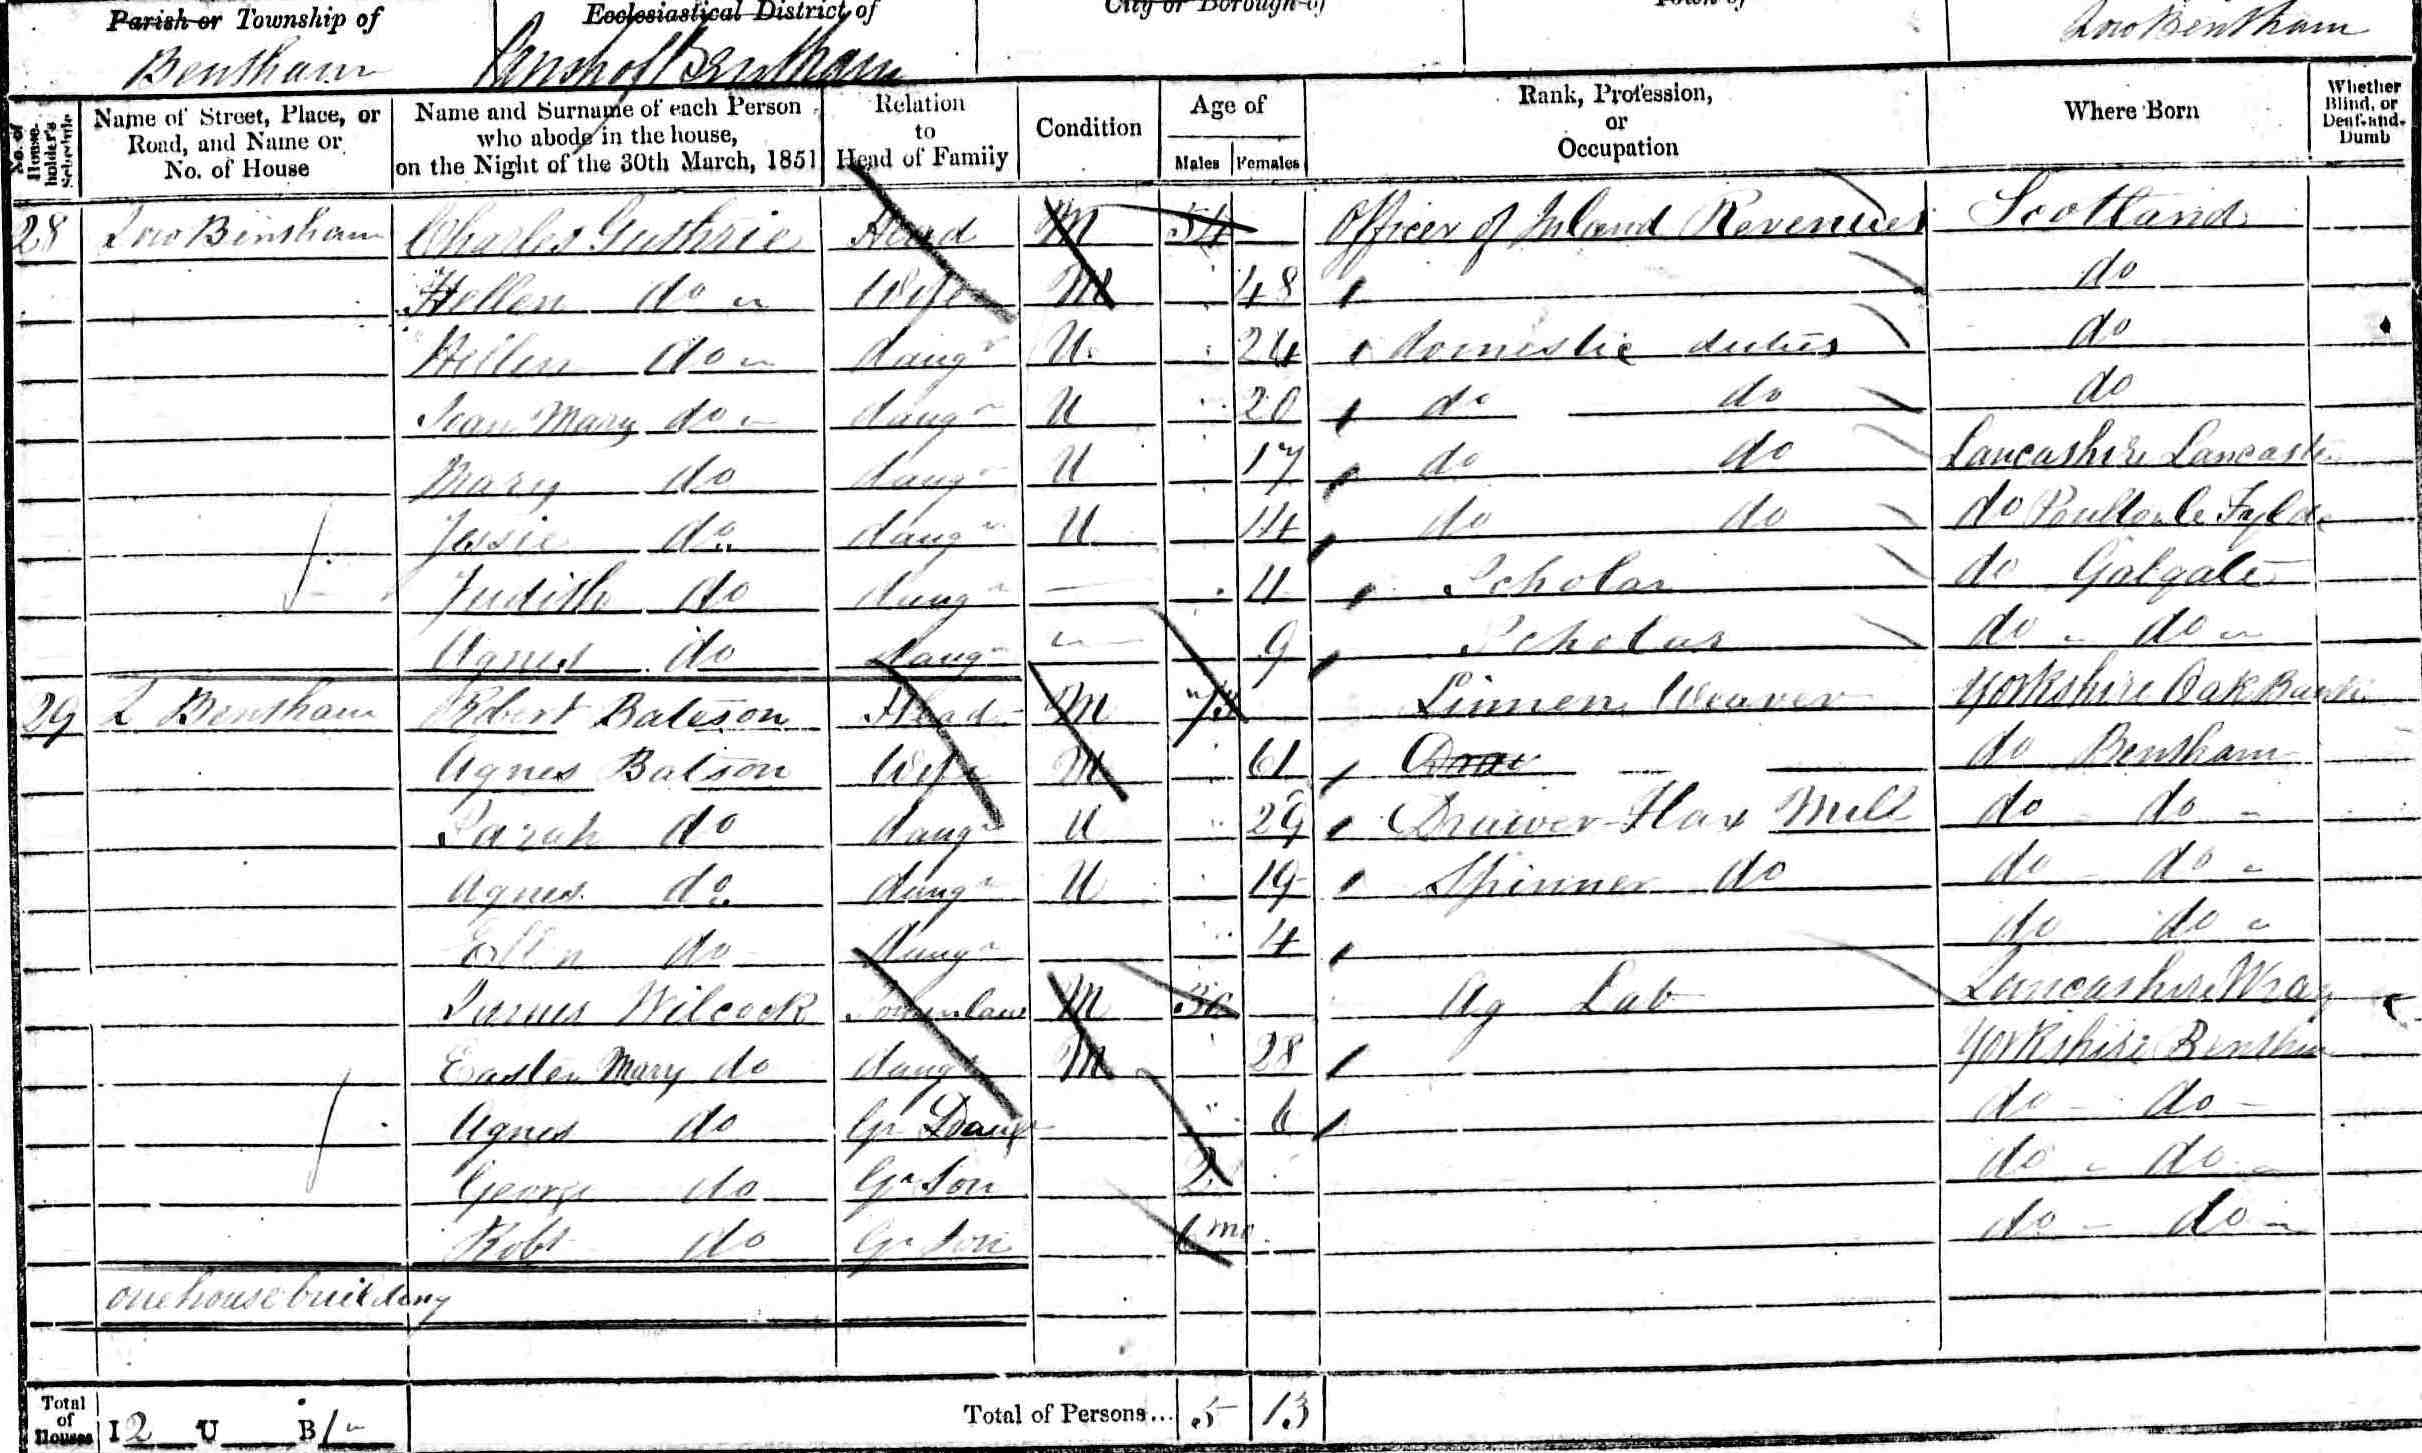 Parish or Township of Ecclesiastical District of City or Borough of Town of
Bentham Parish of Bentham Low Bentham
No. of Householder's Schedule Name of Street, Place, or Road, and Name or No. of House Name and Surname of each Person who abode in the house, on the Night of the 30th March, 1851 Relation to Head of Family Condition Age of Males Females Rank, Profession, or Occupation Where Born Whether Blind, or Deaf-and-Dumb
28 Low Bentham Charles Guthrie Head M 54 Officer of Inland Revenue Scotland
Hellen do Wife M 48 do
Hellen do daugr U 24 domestic duties do
Jean Mary do daugr U 20 do do do
Mary do daugr U 17 do do Lancashire Lancaster
Jessie do daugr U 14 do do do Poulton le Fylde
Judith do daugr 11 Scholar do Galgate
Agnes do daugr 9 Scholar do do
29 L Bentham Robert Bateson Head M 73 Linnen Weaver Yorkshire Oak Bank
Agnes Batson Wife M 61 Draw do Bentham
Sarah do daugr U 29 Drawer Flax Mill do do
Agnes do daugr U 19 Spinner do do do
Ellen do daugr 4 do do
James Wilcock Son in law M 30 Ag Lab Lancashire Wray
Easter Mary do daugr M 28 Yorkshire Bentham
Agnes do Gr Daugr 6 do do
George do Gr Son 2 do do
Robt do Gr Son 6 mo do do
one house building
Total of Houses I 2 U B 1 Total of Persons... 5 13